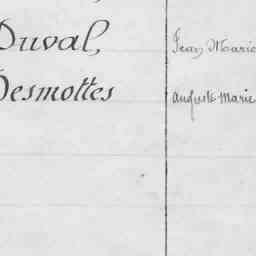 Duval, Jean Marie
Desmottes Auguste Marie